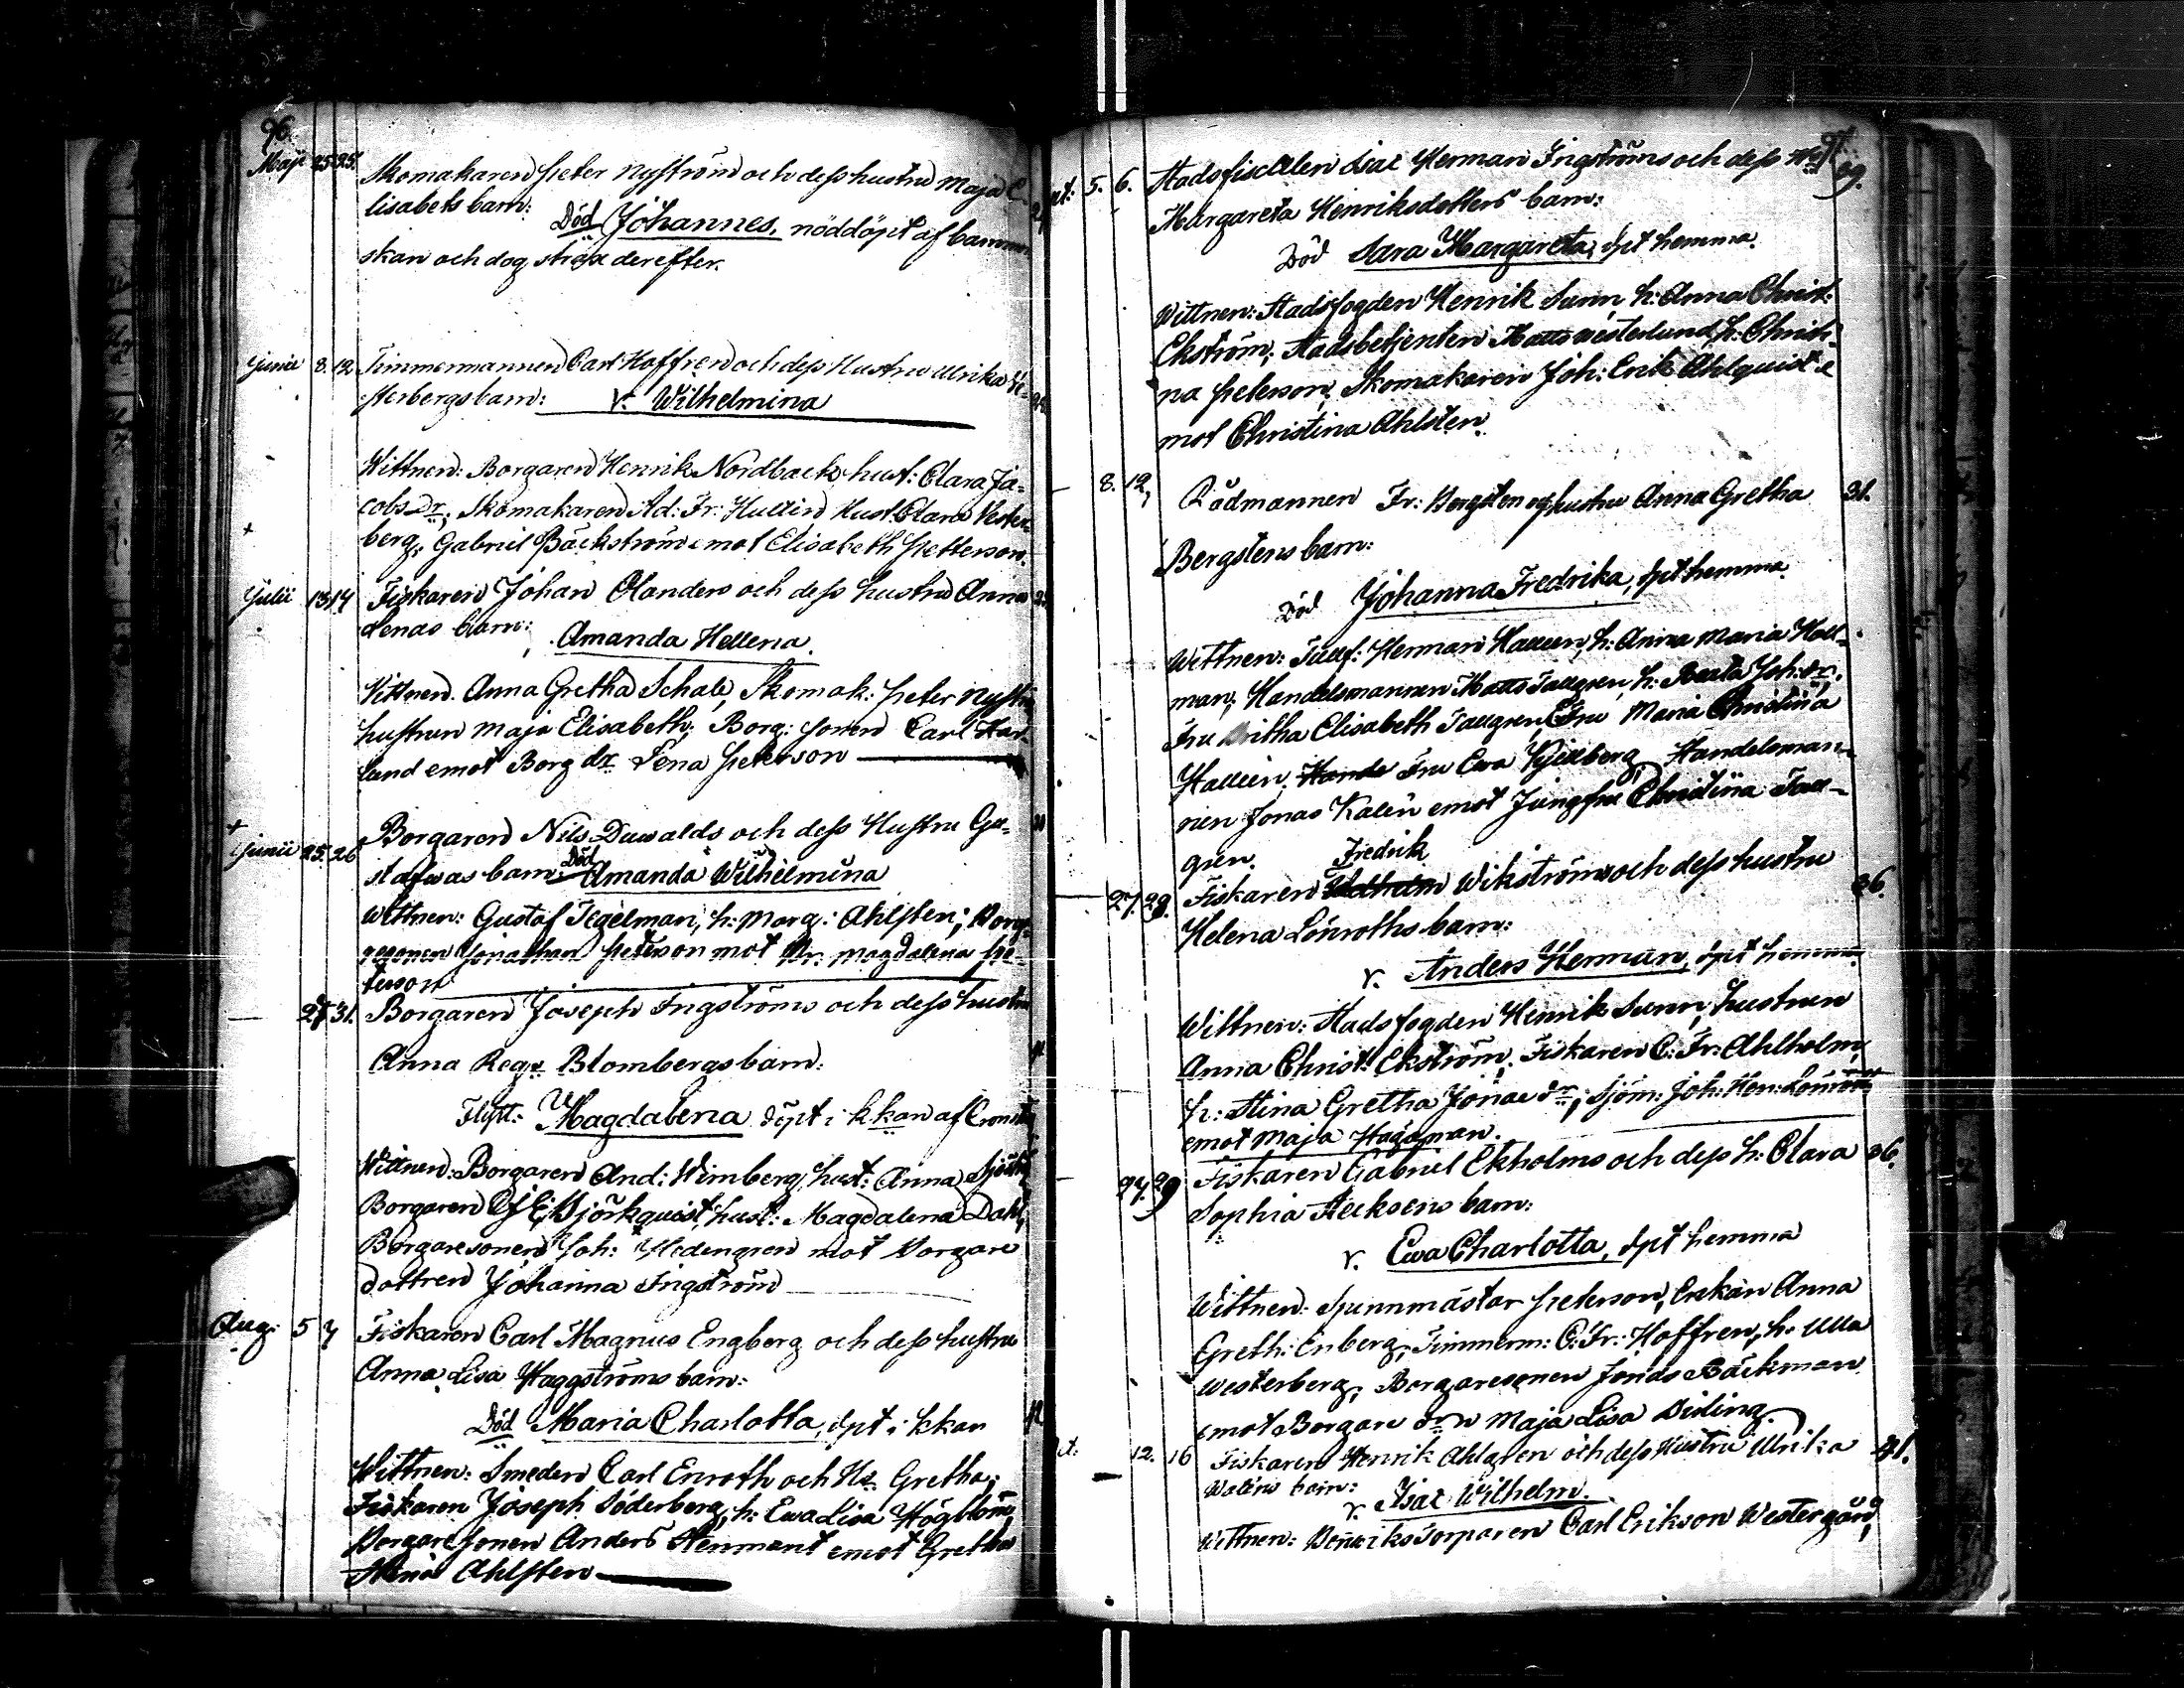 96.
Maji 25 25. Skomakaren Peter Nyström och dess hustru Maja E-
lisabets barn:
Död Johannes, nöddöpt af barnmor
skan och dog strax derefter.
Junii 8. 12 Timmermannen Carl Hoffren och dess Hustru Ulrika We-
sterbergs barn: v. Wilhelmina
Wittnen: Borgaren Henrik Nordback, hust: Clara Ja-
cobs Dr; Skomakaren Ad: Fr: Hullin Hust: Clara Vester-
berg, Gabriel Bäckström emot Elisabeth Petterson.
Julii 13 14 Fiskaren Johan Olanders och dess hustru Anna
Lenas barn: Amanda Hellena.
Vittnen. Anna Gretha Schale, Skomak: Peter Nyström
hustrun Maja Elisabeth; Borg: sonen Carl Har-
lund emot Borg dr Lena Peterson
Junii 25. 26 Borgaren Nils Duwalds och dess Hustru Gu-
stafwas barn: Död Amanda Wilhelmina
Wittnen: Gustaf Tegelman, h: Marg: Ahlsten; Borg-
resonen Jonathan Peterson mot Dr. Magdalena Pe-
terson
27 31. Borgaren Joseph Ingströms och dess hustru
Anna Reg: Blombergs barn:
Flytt: Magdalena döpt i kkan af
Wittnen: Borgaren And: Wimberg, hust: Anna
Borgaren Björkquist, hust: Magdalena Dahl,
Borgaresonen Joh: Hedengren mot Borgare
dottren Johanna Ingström
Aug: 5 7 Fiskaren Carl Magnus Engberg och dess hustru
Anna Lisa Haggströms barn:
Död Maria Charlotta, dpt i kkan
Wittnen: Smeden Carl Enroth och Hu Gretha;
Fiskaren Joseph Söderberg, h: Ewa Lisa Högblom,
Borgaresonen Anders Stenmant emot Gretha
Stina Ahlsten
5. 6. Stadsfiscalen Isac Herman Ingströms och dess Hu 29.
Margareta Henriksdotters barn:
Död Sara Margareta, dpt hemma.
Wittnen: Stadsfogden Henrik Sunn, h: Anna Christ:
Ekström; Stadsbetjenten Matts Westerlund, h: Christi-
na Peterson; Skomakaren Joh: Erik Ahlquist e
mot Christina Ahlsten.
8. 12, Rådmannen Fr: Bergsten och hustru Anna Gretha 31.
Bergstens barn:
Död Johanna Fredrika, dpt hemma.
Wittnen: Tullf: Herman Hallen, h: Anna Maria Holl-
man; Handelsmannen Matts Tallgren, h: Beata Joh: dr,
Fru Britha Elisabeth Tallgren, Fru Maria Christina
Hallén, Fru Ewa Kjellberg, Handelsman-
nen Jonas Kalén emot Jungfru Christina Tall-
gren.
27. 29. Fiskaren Fredrik Wikströms och dess hustru 36.
Helena Lönroths barn:
v. Anders Herman, dpt hemma
Wittnen: Stadsfogden Henrik Sunn, hustrun
Anna Christ: Ekström; Fiskaren C: Fr: Ahlholm,
h: Stina Gretha Jonae dr; Sjöm: Joh: Hen: Lönroth
emot Maja Hagaman.
27. 29 Fiskaren Gabriel Ekholms och dess h: Clara 36.
Sophia barn:
v. Ewa Charlotta, dpt hemma
Wittnen: Spunnmästar Peterson, Enkan Anna
Greth: Enberg; Timmerm: C: Fr: Hoffren, h: Ulla
Westerberg; Borgaresonen Jonas Bäckman
emot Borgare drn Maja Lisa
12. 16 Fiskaren Henrik Ahlqren och dess Hustru Ulrika 41.
Waléns barn:
v. Isac Wilhelm.
Wittnen: Carl Erikson Westergård,